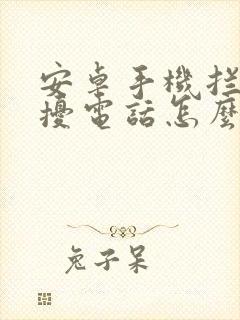 安卓手機拦
擾電話怎麼
兔子呆